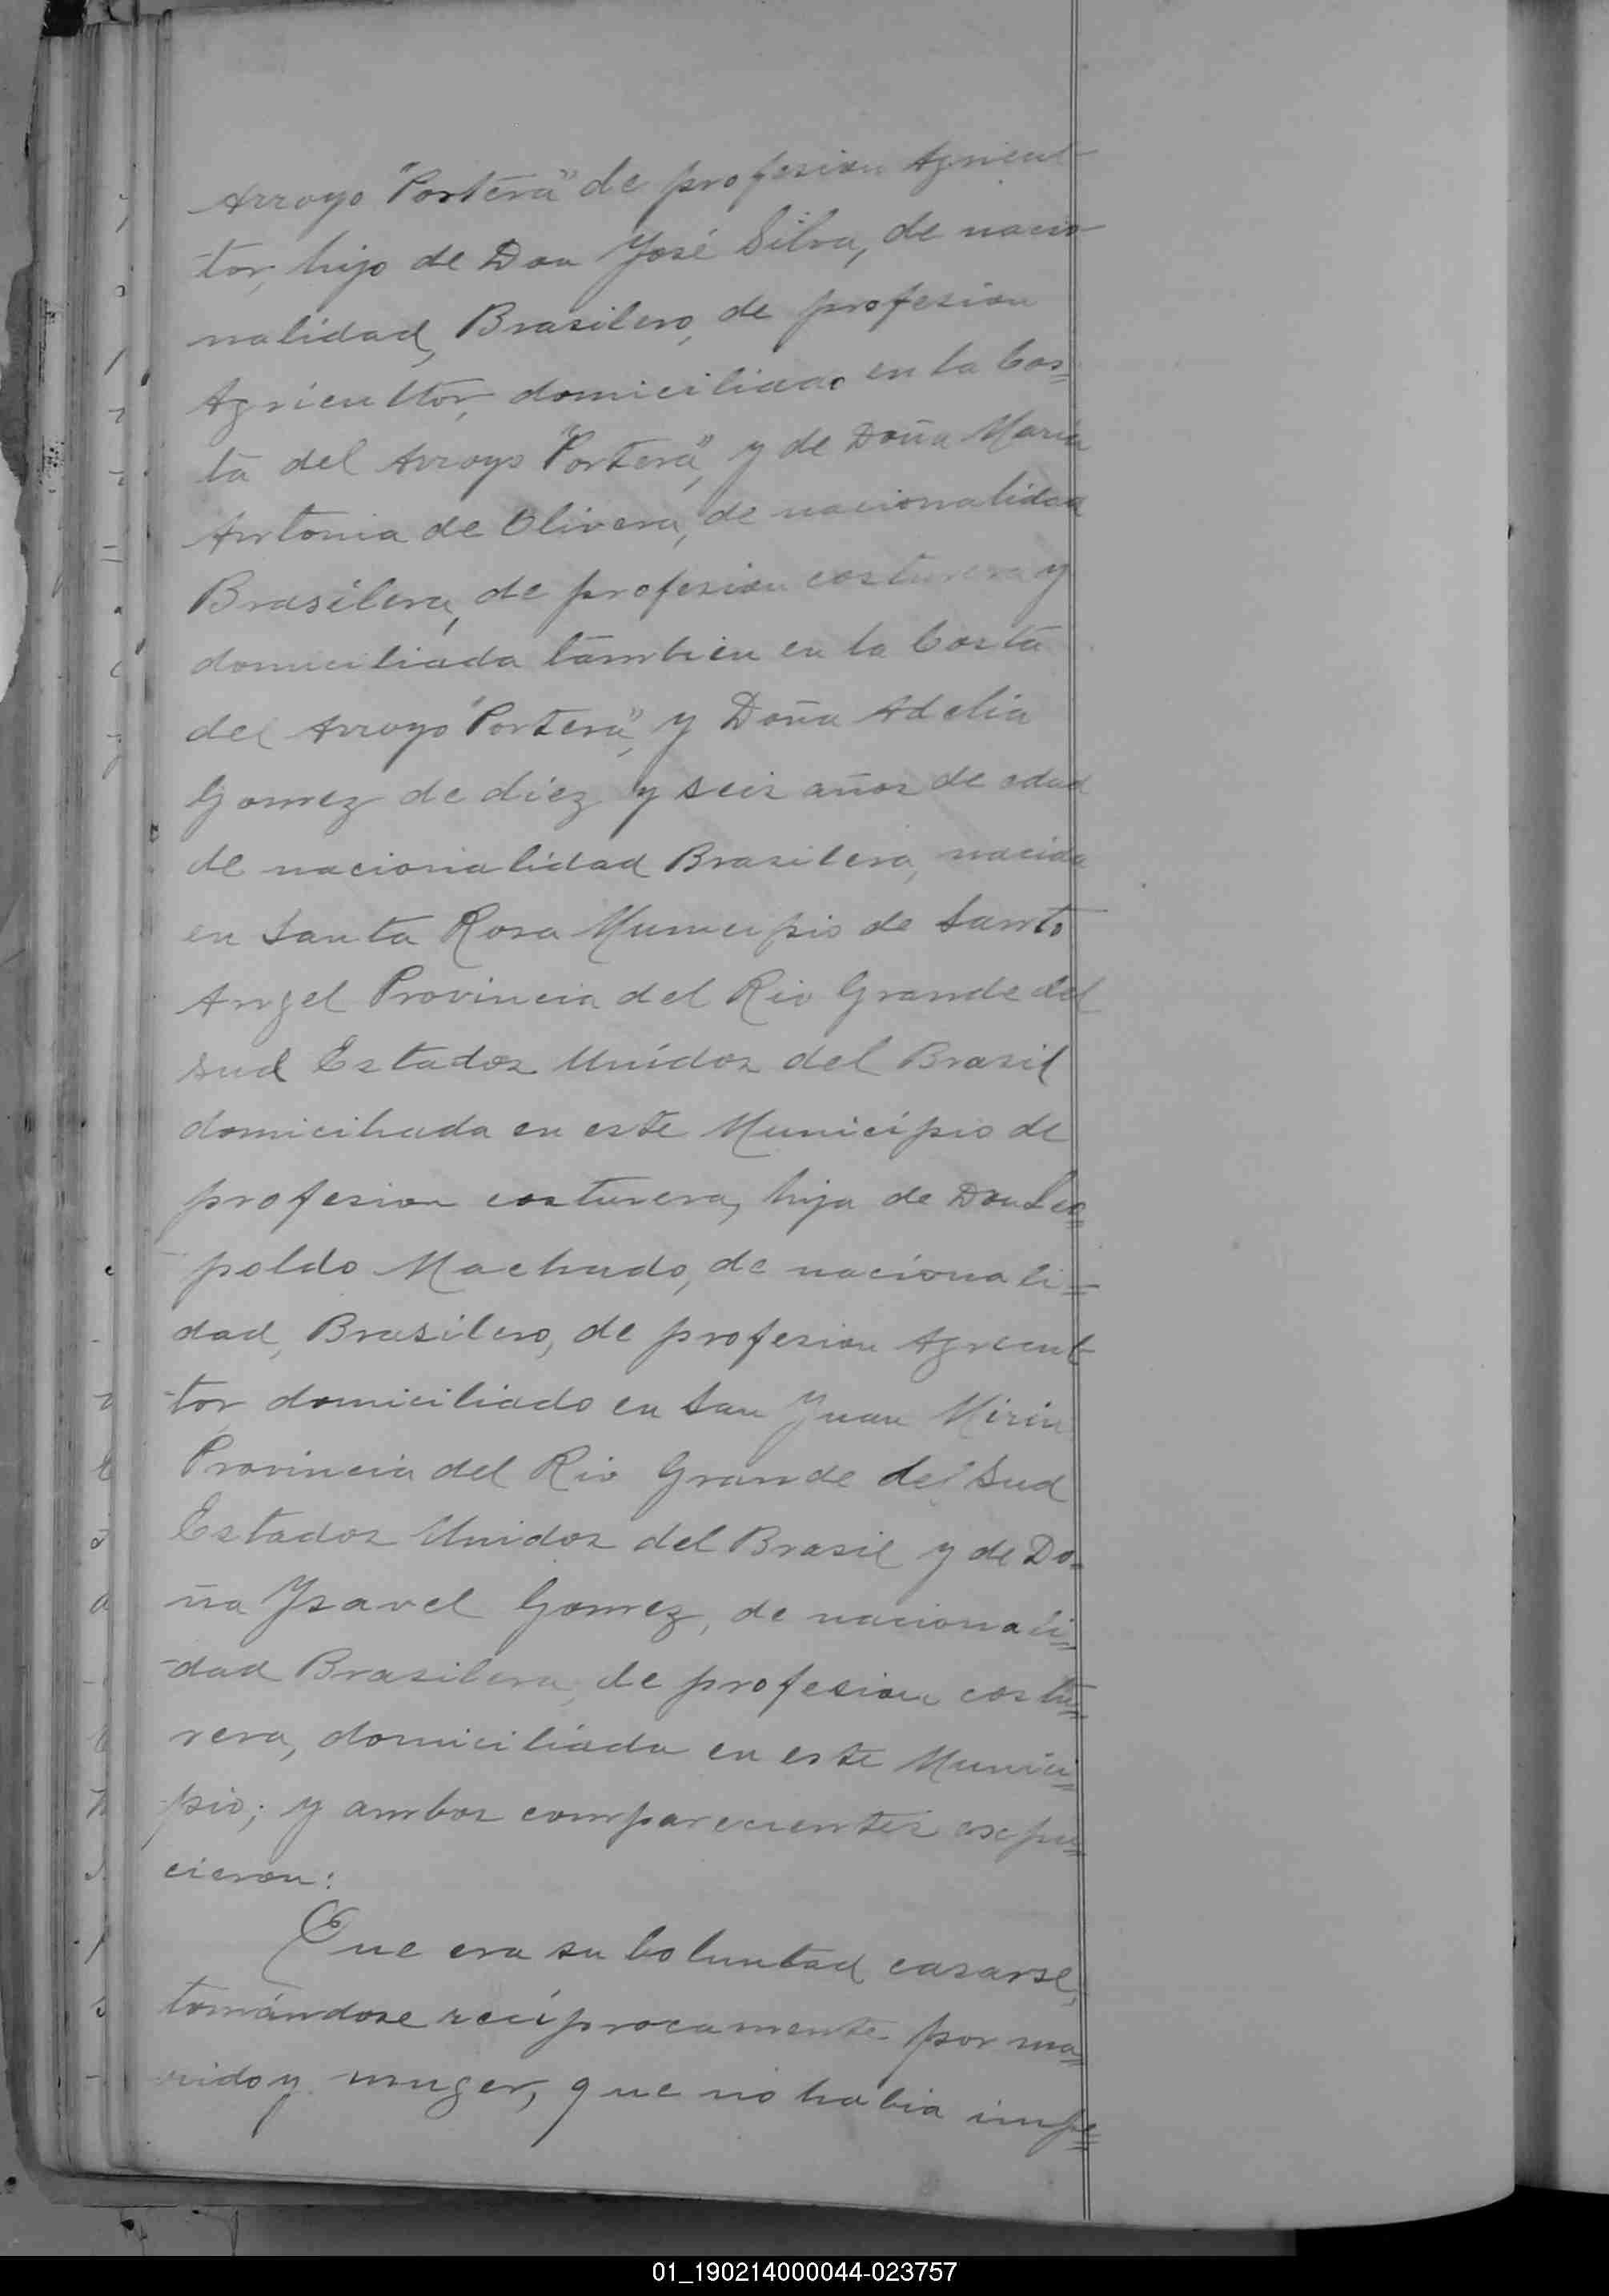 Arroyo "Portera" de profesion Agricul-
-tor, hijo de Don José Silva, de nacio-
nalidad, Brasilero, de profesion
Agricultor, domiciliado en la Cos=
ta del Arroyo "Portera", y de Doña Maria
Antonia de Olivera, de nacionalidad
Brasilera, de profesion costurera y
domiciliada tambien en la Costa
del Arroyo "Portera", y Doña Adelia
Gomez de diez y seis años de edad
de nacionalidad Brasilera, nacida
en Santa Rosa Municipio de Santo
Angel Provincia del Rio Grande del
Sud Estados Unidos del Brasil
domiciliada en este Municipio de
profesion costurera, hija de Don Leo=
poldo Machado, de nacionali=
dad, Brasilero, de profesion Agricul-
-tor domiciliado en San Juan Mirin
Provincia del Rio Grande del Sud
Estados Unidos del Brasil y de Do=
ña Ysavel Gomez, de nacionali=
-dad Brasilera, de profesion costu=
rera, domiciliada en este Munici=
pio; y ambos comparecientes expu=
cieron:
Que era su boluntad casarse,
tomándose recíprocamente por ma=
rido y muger, que no habia impe=
01_190214000044-023757